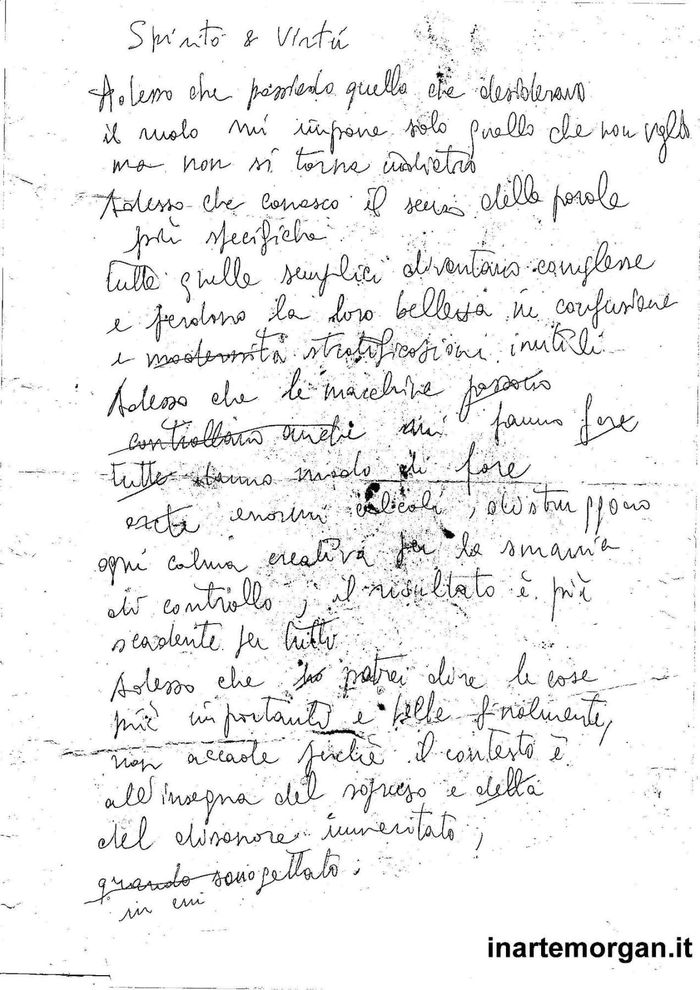 Spirito & Virtù
Adesso che possiedo quello che desideravo
il ruolo mi impone solo quello che non voglio
ma non si torna indietro
Adesso che conosco il senso delle parole
più specifiche
tutte quelle semplici diventano complesse
e perdono la loro bellezza in confusione
e modernità stratificazioni inutili
Adesso che le macchine possono
controllano anche mi fanno fare
tutte danno modo di fare
enormi calcoli, distruggono
ogni calma creativa per la smania
di controllo, il risultato è più
scadente per tutto
Adesso che ho potrei dire le cose
più importanti e belle finalmente,
non accade perché il contesto è
all'insegna del sopruso e della
del disonore immeritato,
quando sono gettato.
in cui
inartemorgan.it